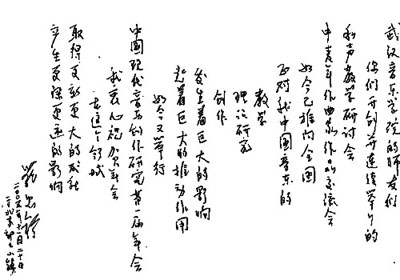 武汉音乐学院的师友们
你们开创并连续举行的
和声教学研讨会
中青年作曲家作品交流会
如今已推向全国
正对我中国音乐的
教学
理论研究
创作
发生着巨大的影响
起着巨大的推动作用
如今又举行
中国现代音乐创作研究第一届年会
我衷心祝贺年会
在这个领域
取得更新更大的成就
产生更深更远的影响